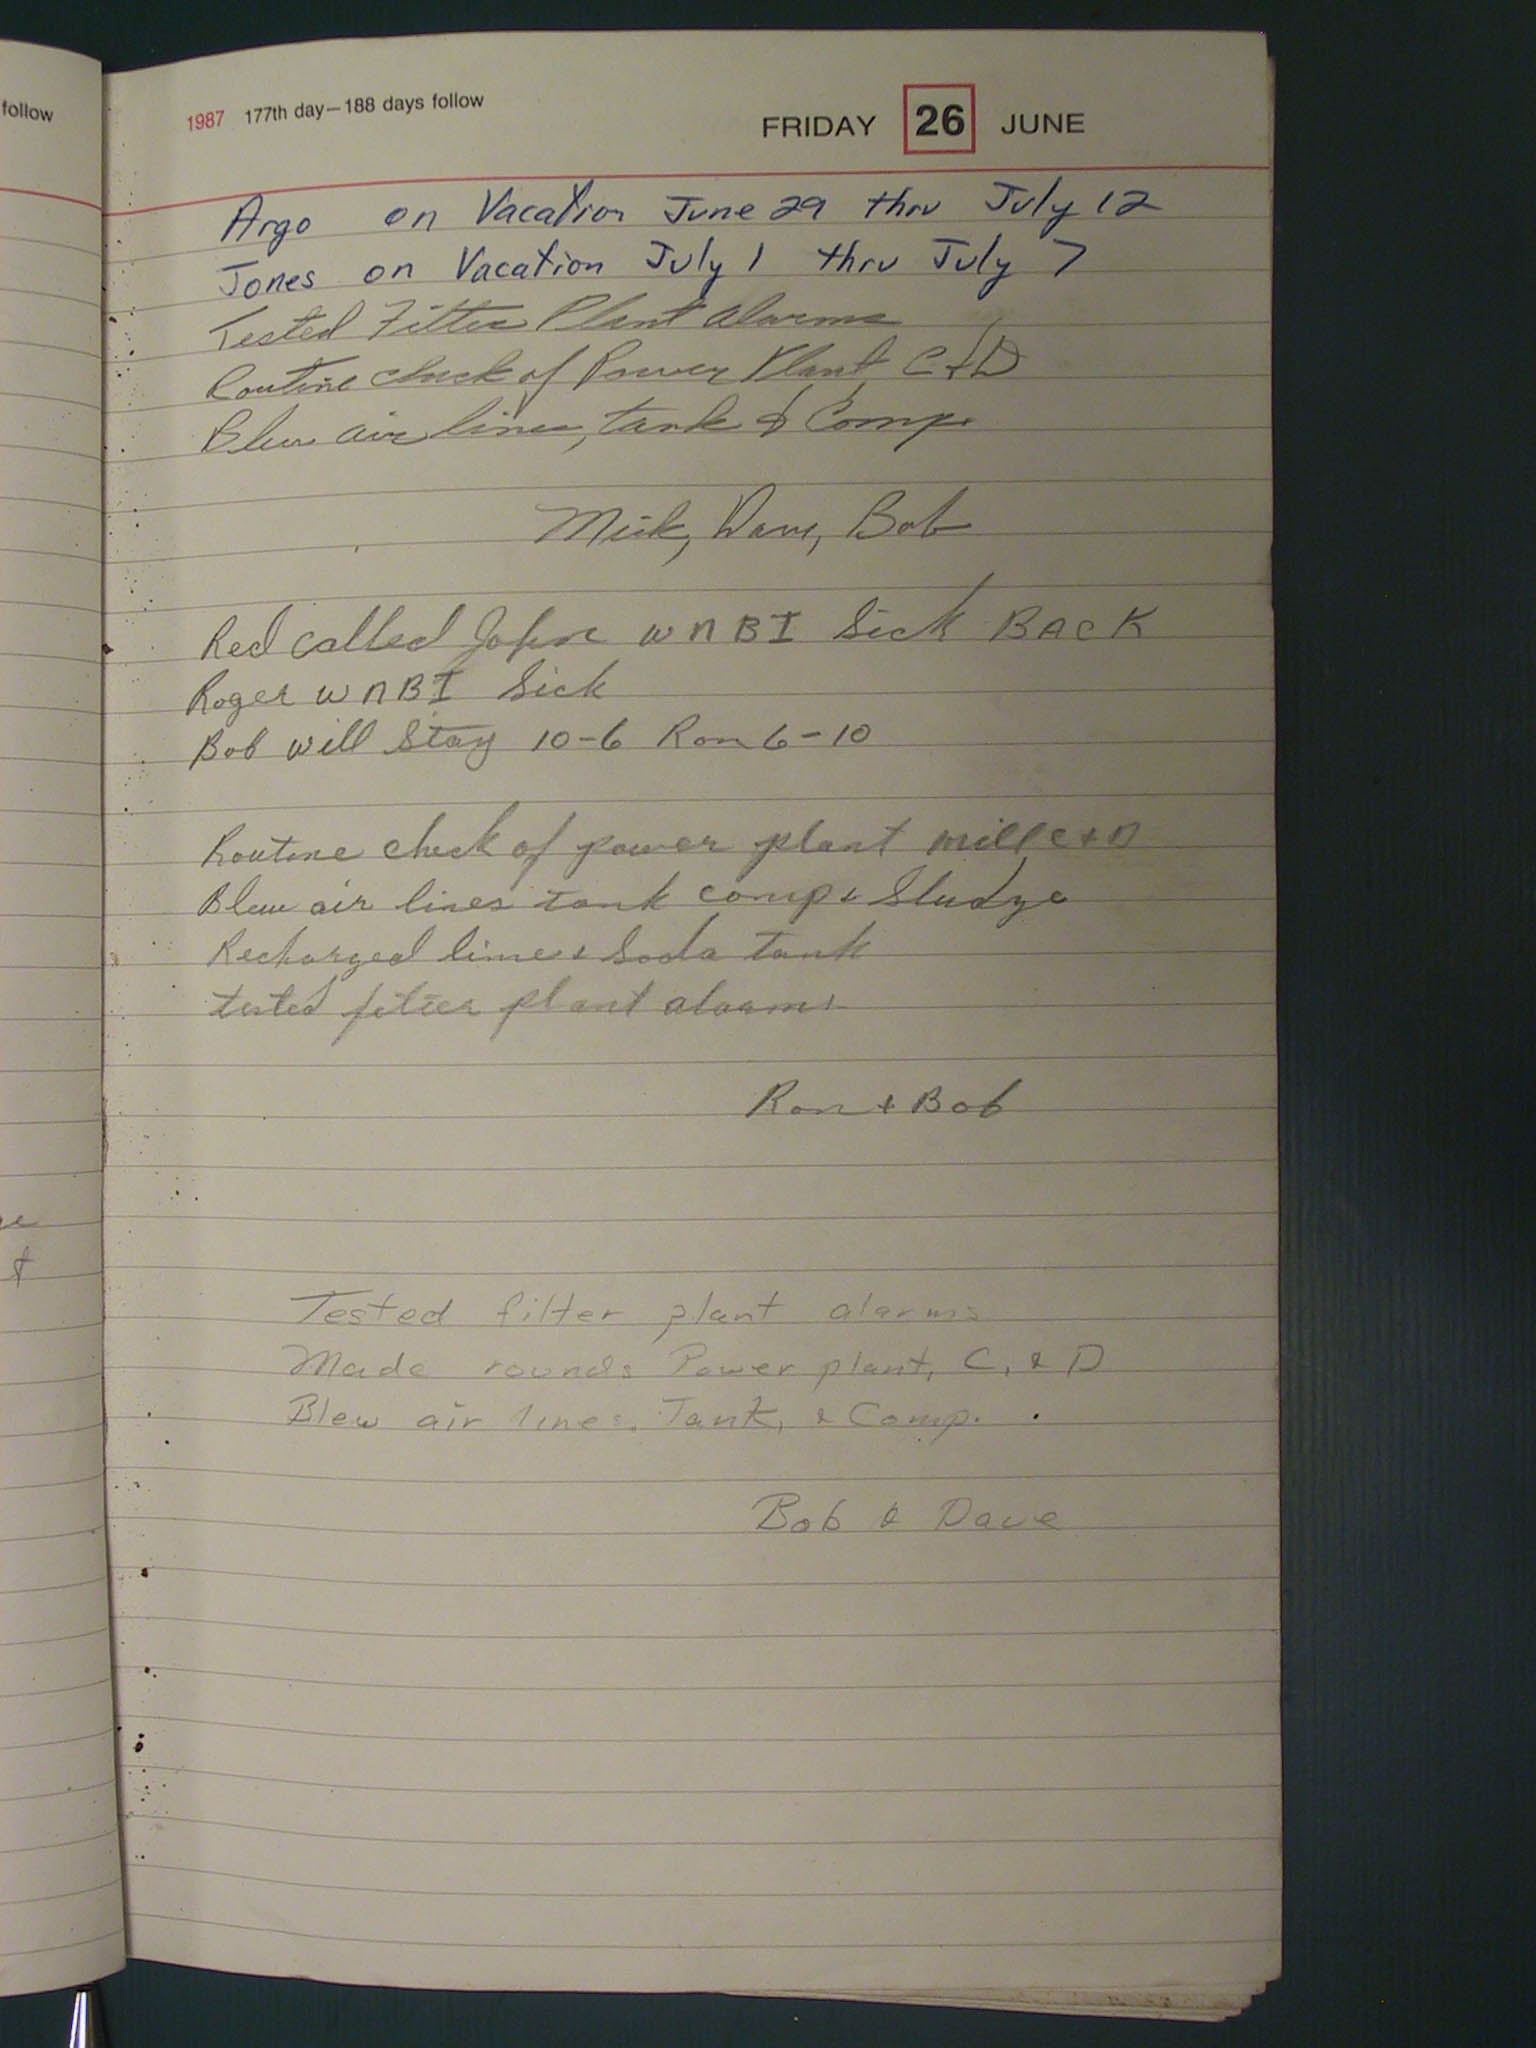 follow
1987 177th day—188 days follow
FRIDAY 26 JUNE
Argo on Vacation June 29 thru July 12
Jones on Vacation July 1 thru July 7
Tested Filter Plant alarms
Routine check of Power Plant, C & D
Blew air lines, tank & Comp.
Mick, Dave, Bob
Red called John WNBI Sick BACK
Roger WNBI Sick
Bob will Stay 10-6 Ron 6-10
Routine check of power plant mill C + D
Blew air lines tank comp & Sludge
Recharged lime & Soda tank
tested filter plant alarms
Ron + Bob
Tested filter plant alarms
Made rounds Power plant, C, & D
Blew air lines, Tank, & Comp.
Bob & Dave